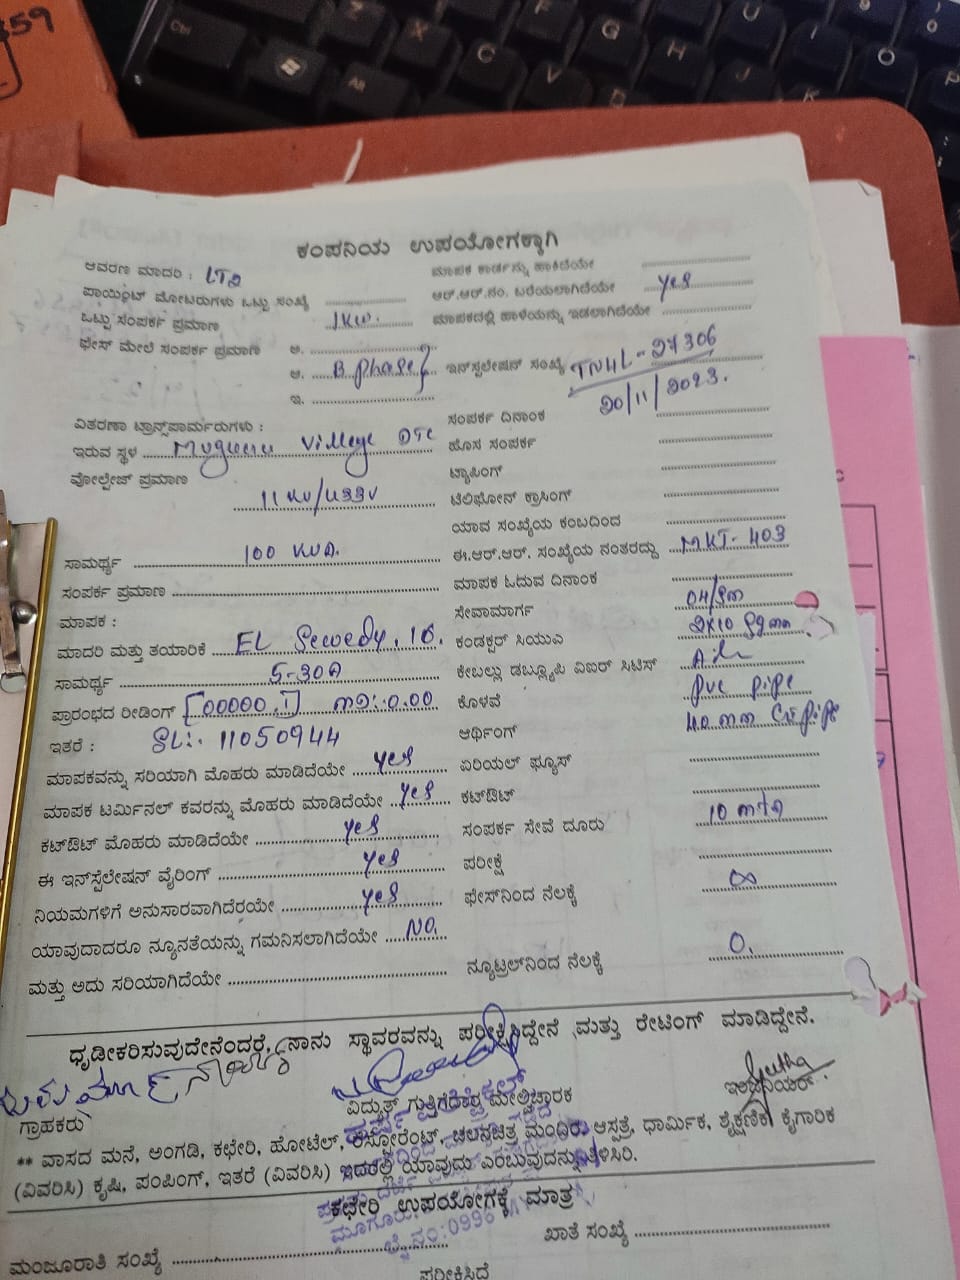 359
ಕಂಪನಿಯ ಉಪಯೋಗಕ್ಕಾಗಿ
ಆವರಣ ಮಾದರಿ : LT2
ಮಾಪಕ ಕಾರ್ಡನ್ನು ಹಾಕಿದೆಯೇ
ಪಾಯಿಂಟ್ ಮೋಟರುಗಳು ಒಟ್ಟು ಸಂಖ್ಯೆ
ಆರ್.ಆರ್.ನಂ. ಬರೆಯಲಾಗಿದೆಯೇ Yes
ಒಟ್ಟು ಸಂಪರ್ಕ ಪ್ರಮಾಣ 1KW.
ಮಾಪಕದಲ್ಲಿ ಹಾಳೆಯನ್ನು ಇಡಲಾಗಿದೆಯೇ
ಫೇಸ್ ಮೇಲೆ ಸಂಪರ್ಕ ಪ್ರಮಾಣ ಅ.
ಆ. B phase
ಇ.
ಇನ್‌ಸ್ಟಲೇಷನ್ ಸಂಖ್ಯೆ TN4L-27306
20/11/2023.
ವಿತರಣಾ ಟ್ರಾನ್ಸ್‌ಪಾರ್ಮರುಗಳು :
ಸಂಪರ್ಕ ದಿನಾಂಕ
ಇರುವ ಸ್ಥಳ Muguru Village DTC
ಹೊಸ ಸಂಪರ್ಕ
ವೋಲ್ಟೇಜ್ ಪ್ರಮಾಣ 11 KV/433V
ಟ್ಯಾಪಿಂಗ್
ಟೆಲಿಫೋನ್ ಕ್ರಾಸಿಂಗ್
ಯಾವ ಸಂಖ್ಯೆಯ ಕಂಬದಿಂದ
ಸಾಮರ್ಥ್ಯ 100 KVA.
ಈ.ಆರ್.ಆರ್. ಸಂಖ್ಯೆಯ ನಂತರದ್ದು MKT-403
ಸಂಪರ್ಕ ಪ್ರಮಾಣ
ಮಾಪಕ ಓದುವ ದಿನಾಂಕ
ಮಾಪಕ :
ಸೇವಾಮಾರ್ಗ
ಮಾದರಿ ಮತ್ತು ತಯಾರಿಕೆ EL Sewedy, 10.
ಕಂಡಕ್ಟರ್ ಸಿಯುವಿ
ಸಾಮರ್ಥ್ಯ 5-30A
ಕೇಬಲ್ಲು ಡಬ್ಲ್ಯೂಪಿ ವಿಐಆರ್ ಸಿಟಿಸ್
ಪ್ರಾರಂಭದ ರೀಡಿಂಗ್ [00000.1] 0.00
ಕೊಳವೆ PVC pipe
ಇತರೆ : SL:. 11050944
ಆರ್ಥಿಂಗ್
ಮಾಪಕವನ್ನು ಸರಿಯಾಗಿ ಮೊಹರು ಮಾಡಿದೆಯೇ yes
ಏರಿಯಲ್ ಫ್ಯೂಸ್
ಮಾಪಕ ಟರ್ಮಿನಲ್ ಕವರನ್ನು ಮೊಹರು ಮಾಡಿದೆಯೇ yes
ಕಟ್‌ಔಟ್
ಕಟ್‌ಔಟ್ ಮೊಹರು ಮಾಡಿದೆಯೇ yes
ಸಂಪರ್ಕ ಸೇವೆ ದೂರು
ಈ ಇನ್‌ಸ್ಟೆಲೇಷನ್ ವೈರಿಂಗ್ yes
ಪರೀಕ್ಷೆ
ನಿಯಮಗಳಿಗೆ ಅನುಸಾರವಾಗಿದೆರಯೇ yes
ಫೇಸ್‌ನಿಂದ ನೆಲಕ್ಕೆ ∞
ಯಾವುದಾದರೂ ನ್ಯೂನತೆಯನ್ನು ಗಮನಿಸಲಾಗಿದೆಯೇ NO.
ಮತ್ತು ಅದು ಸರಿಯಾಗಿದೆಯೇ
ನ್ಯೂಟ್ರಲ್‌ನಿಂದ ನೆಲಕ್ಕೆ 0.
ಧೃಡೀಕರಿಸುವುದೇನೆಂದರೆ, ನಾನು ಸ್ಥಾವರವನ್ನು ಪರೀಕ್ಷಿಸಿದ್ದೇನೆ ಮತ್ತು ರೇಟಿಂಗ್ ಮಾಡಿದ್ದೇನೆ.
ಗ್ರಾಹಕರು
ವಿದ್ಯುತ್ ಗುತ್ತಿಗೆದಾರ ಮೇಲ್ವಿಚಾರಕ
ಇಂಜಿನಿಯರ್
** ವಾಸದ ಮನೆ, ಅಂಗಡಿ, ಕಛೇರಿ, ಹೋಟೆಲ್, ರೆಸ್ಟೋರೆಂಟ್, ಚಲನಚಿತ್ರ ಮಂದಿರ, ಆಸ್ಪತ್ರೆ, ಧಾರ್ಮಿಕ, ಶೈಕ್ಷಣಿಕ, ಕೈಗಾರಿಕ
(ವಿವರಿಸಿ) ಕೃಷಿ, ಪಂಪಿಂಗ್, ಇತರೆ (ವಿವರಿಸಿ) ಇದರಲ್ಲಿ ಯಾವುದು ಎಂಬುವುದನ್ನು ತಿಳಿಸಿರಿ.
ಕಛೇರಿ ಉಪಯೋಗಕ್ಕೆ ಮಾತ್ರ
ಮಂಜೂರಾತಿ ಸಂಖ್ಯೆ
ಖಾತೆ ಸಂಖ್ಯೆ
ಪರೀಕ್ಷಿಸಿದೆ